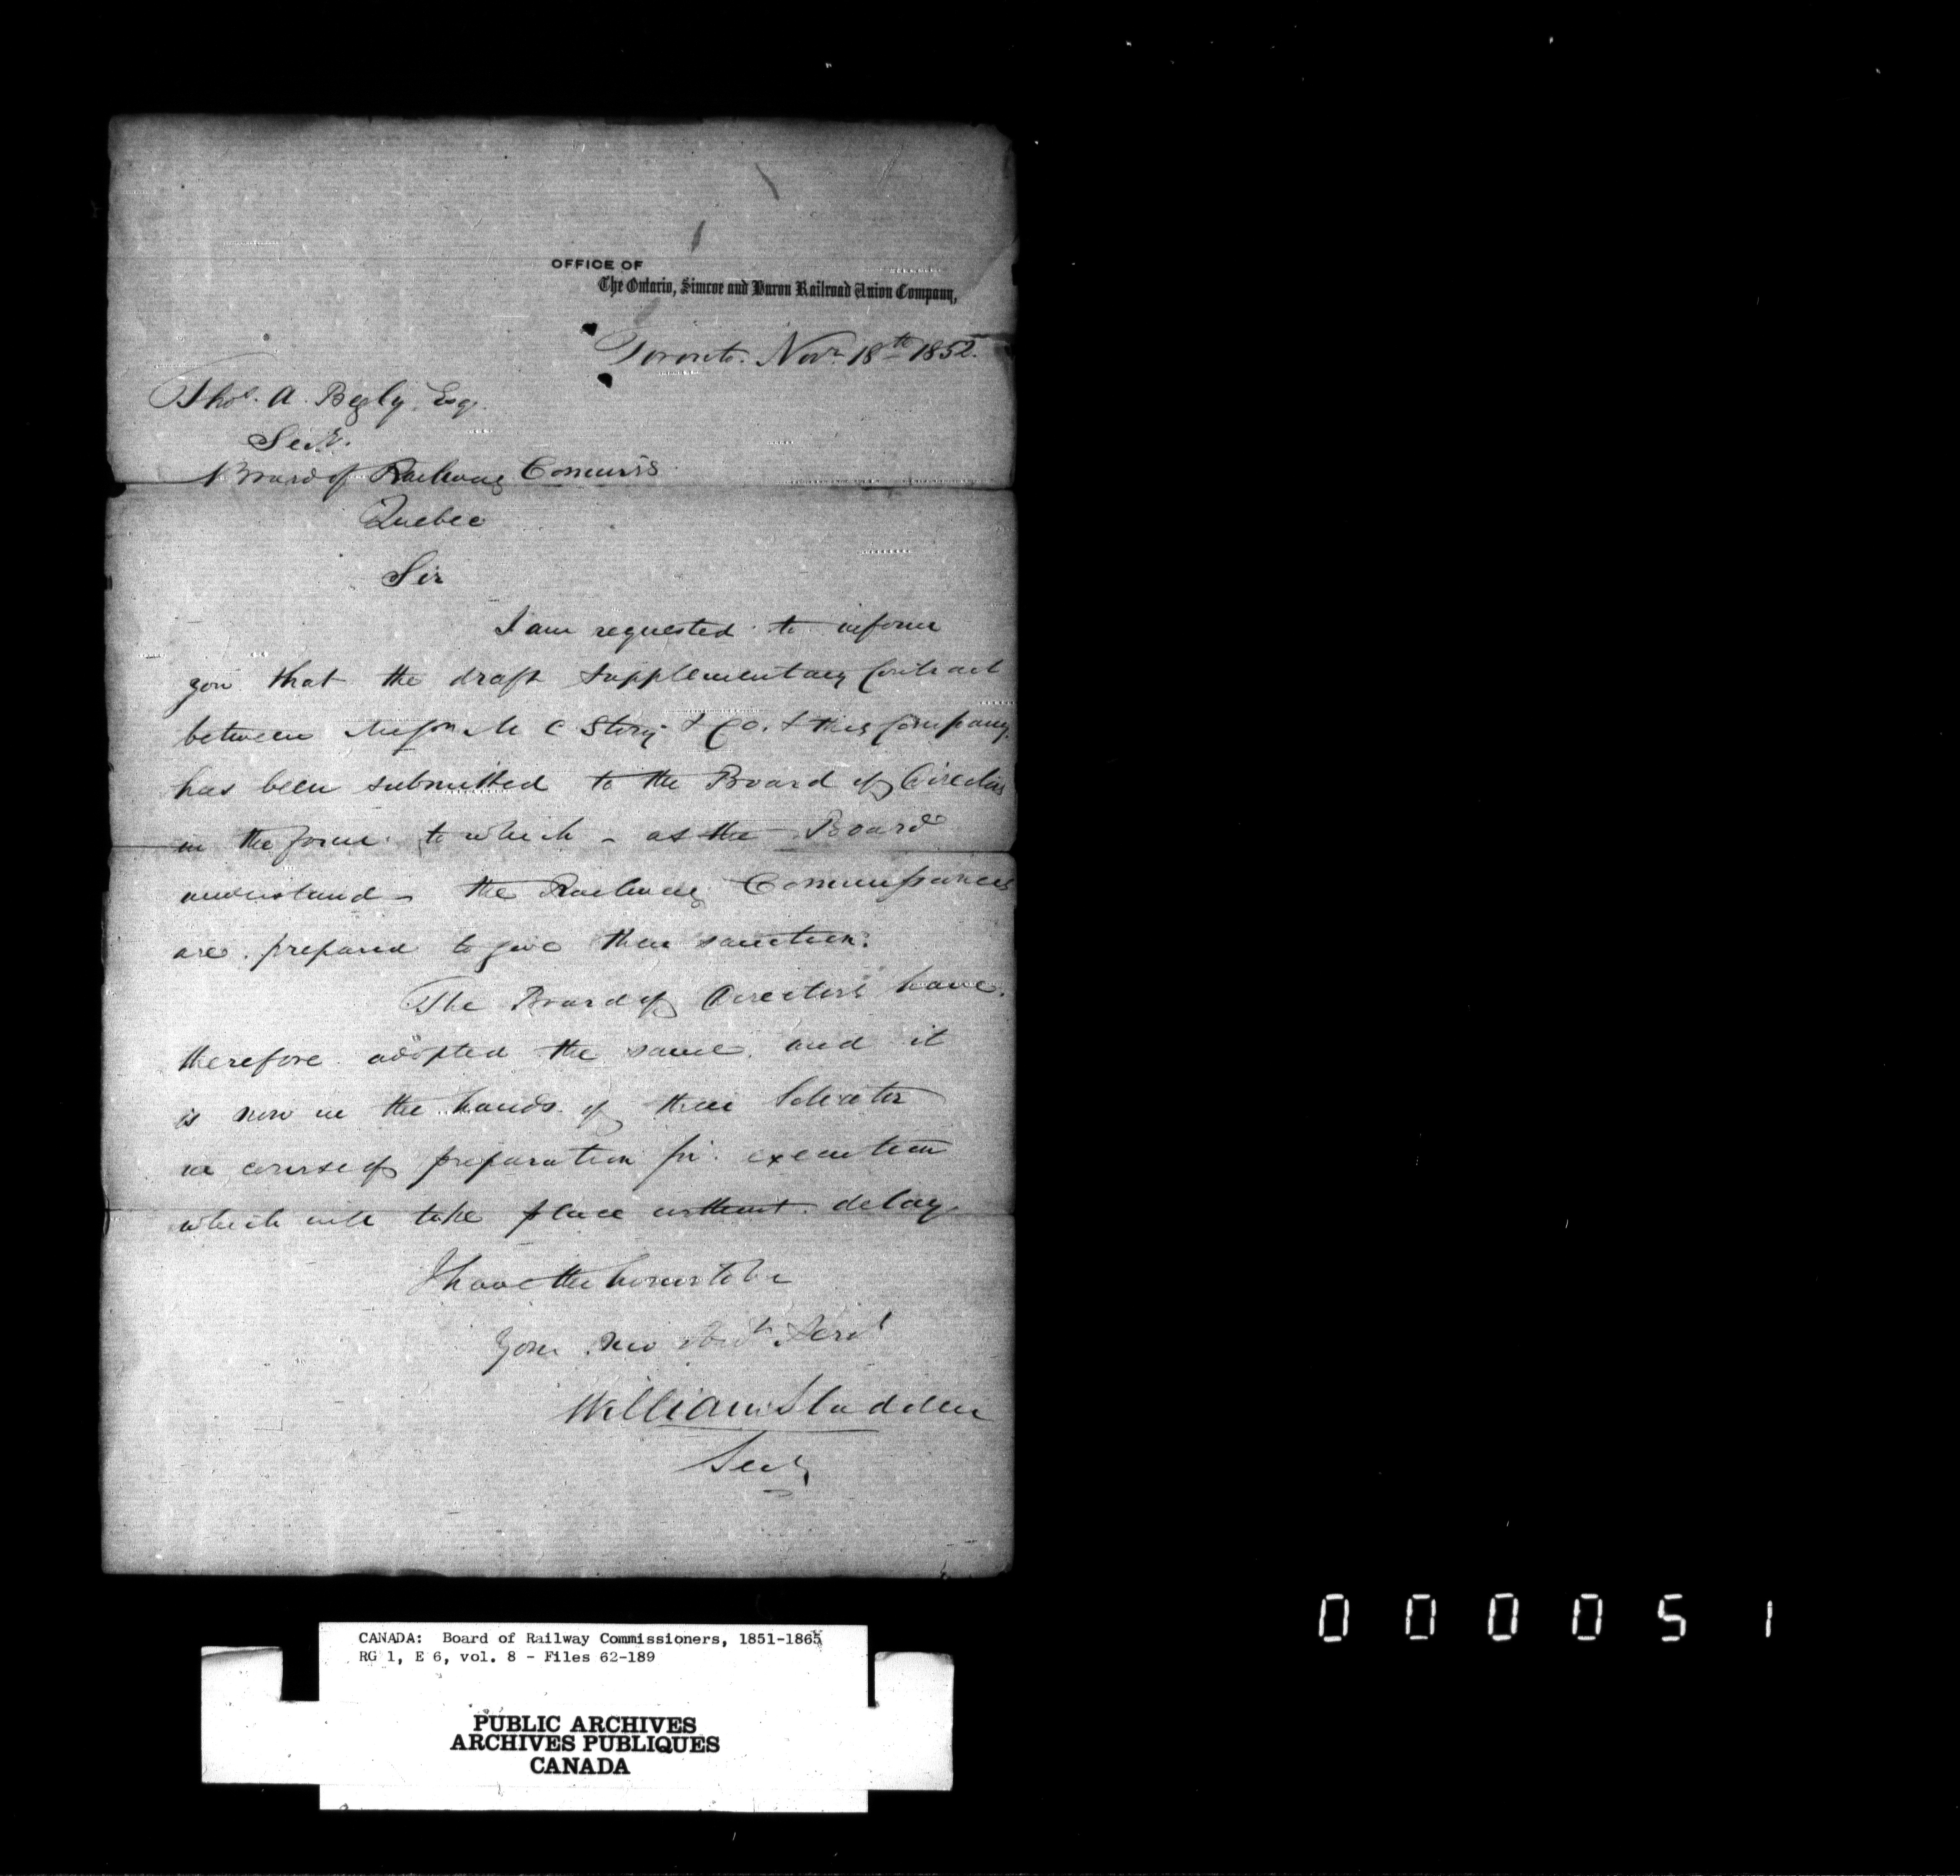 OFFICE OF
The Ontario, Simcoe and Huron Railroad Union Company,
Toronto. Novr 18th 1852.
Thos. A. Begly Esq.
Secy.
Board of Railway Commrs
Quebec
Sir
I am requested to inform
you that the draft Supplementary Contract
between Messrs M C Story & Co. & this Company
has been submitted to the Board of Directors
in the form to which - as the Board
understand - the Railway Commissioners
are prepared to give their sanction.
The Board of Directors have
therefore adopted the same and it
is now in the hands of their Solicitor
in course of preparation for execution
which will take place without delay
I have the honor to be
Your Mo Obdt Servt
William Sladden
Secy
CANADA: Board of Railway Commissioners, 1851-1865
RG 1, E 6, vol. 8 - Files 62-189
PUBLIC ARCHIVES
ARCHIVES PUBLIQUES
CANADA
000051